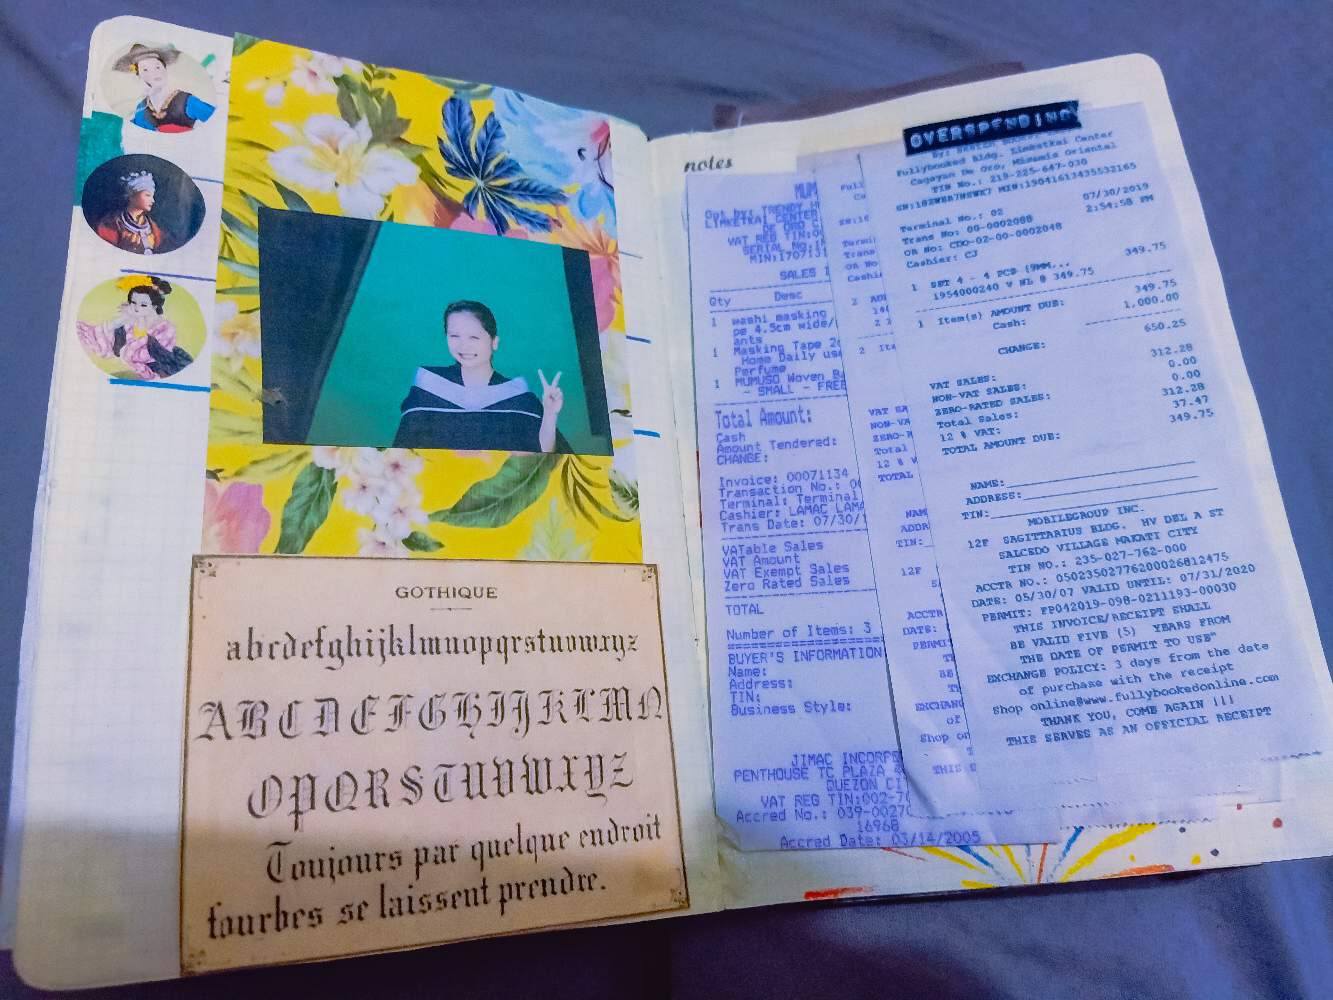 GOTHIQUE
abcdefghijklmnopqrstuvwxyz
ABCDEFGHIJKLMN
OPQRSTUVWXYZ
Toujours par quelque endroit
fourbes se laissent prendre.
notes
MUM
Opt by: TRENDY H
LIMKETKAI CENTER
DE ORO C
VAT REG TIN:0
SERIAL No.:
MIN:1707131
SALES I
Qty Desc
1 washi masking
pe 4.5cm wide/
ants
1 Masking Tape 2
Home Daily use
Perfume
1 MUMUSO Woven B
- SMALL - FREE
Total Amount:
Cash
Amount Tendered:
CHANGE:
Invoice: 00071134
Transaction No.: 00
Terminal: Terminal
Cashier: LAMAC LAMA
Trans Date: 07/30/
VATable Sales
VAT Amount
VAT Exempt Sales
Zero Rated Sales
TOTAL
Number of Items: 3
BUYER'S INFORMATION
Name:
Address:
TIN:
Business Style:
JIMAC INCORP
PENTHOUSE TC PLAZA
QUEZON CI
VAT REG TIN:002-7
Accred No.: 039-0027
16968
Accred Date: 03/14/2005
Full
Termi
Trans
OR No
Cashi
2 Ite
VAT SA
NON-VA
ZERO-R
Total
12 % V
TOTAL
NAM
ADDR
TIN:
12F
ACCTR
DATE:
PERMI
EXCHANG
of
Shop on
THIS S
OVERSPENDING
Fullybooked Bldg. Limketkai Center
Cagayan De Oro, Misamis Oriental
TIN No.: 219-225-647-030
MIN:19041613435532165
07/30/2019
Terminal No.: 02 2:54:58 PM
Trans No: 00-0002088
OR No: CDO-02-00-0002048
Cashier: CJ
1 SET 4 - 4 PCS (9MM... 349.75
1954000240 V NL @ 349.75
1 Item(s) AMOUNT DUE: 349.75
Cash: 1,000.00
CHANGE: 650.25
VAT SALES: 312.28
NON-VAT SALES: 0.00
ZERO-RATED SALES: 0.00
Total Sales: 312.28
12 % VAT: 37.47
TOTAL AMOUNT DUE: 349.75
NAME:
ADDRESS:
TIN:
MOBILEGROUP INC.
12F SAGITTARIUS BLDG. HV DEL A ST
SALCEDO VILLAGE MAKATI CITY
TIN NO.: 235-027-762-000
ACCTR NO.: 05023502776200026812475
DATE: 05/30/07 VALID UNTIL: 07/31/2020
PERMIT: FP042019-098-0211193-00030
THIS INVOICE/RECEIPT SHALL
BE VALID FIVE (5) YEARS FROM
THE DATE OF PERMIT TO USE"
EXCHANGE POLICY: 3 days from the date
of purchase with the receipt
Shop online@www.fullybookedonline.com
THANK YOU, COME AGAIN !!!
THIS SERVES AS AN OFFICIAL RECEIPT